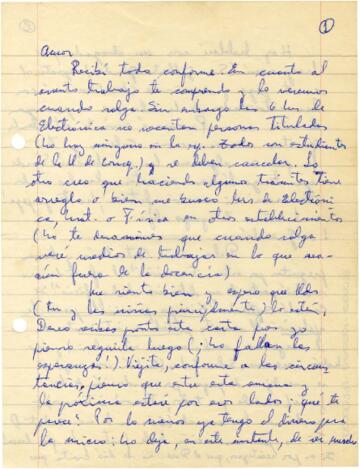 ①
Amor
Recibí todo conforme. En cuanto al
asunto trabajo te comprendo y lo veremos
cuando salga. Sin embargo las 6 hrs de
Electrónica no necesitan personas tituladas
(no hay ninguna en la Todos son estudiantes
de la U de Conc.) y se deben cancelar. Lo
otro creo que haciendo algunos trámites tiene
arreglo o bien me busco hrs de Electróni
ca, Mat. o Física en otros establecimientos
(No te desanimes que cuando salga
veré medios de trabajar en lo que sea
aún fuera de la docencia)
Me siento bien y espero que Uds
(Tú y las niñas principalmente) lo estén.
Deseo recibas pronto esta carta pues yo
pienso seguirla luego (¡No fallan las
esperanzas!). Viejita, conforme a las circuns
tancias, pienso que entre esta semana y
la próxima estaré por esos lados; ¿qué te
parece? Por lo menos ya tengo el dinero para
la micro; no deja, en este instante, de ser mucho